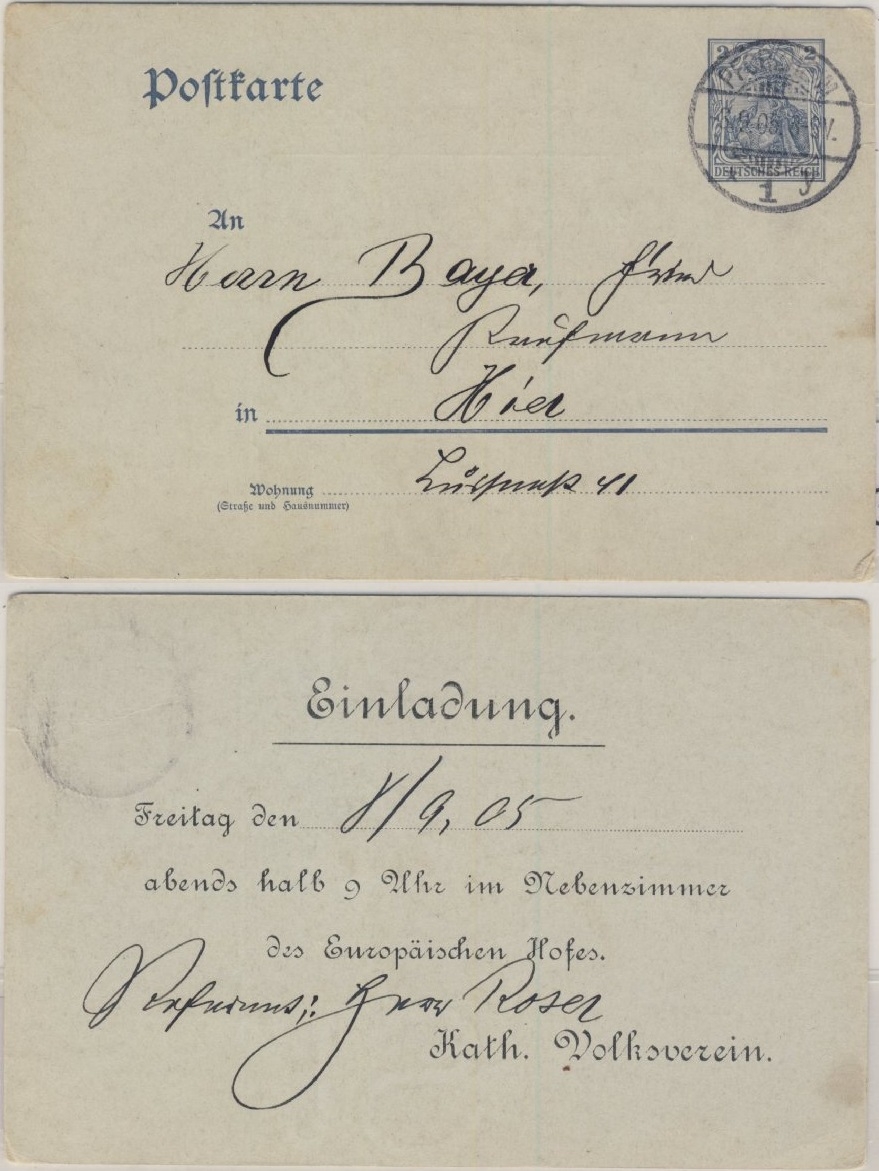 Postkarte
2 2
PFORZHEIM
9.05 8-9V.
1 y
DEUTSCHES REICH
An
Herrn Bayer,
Kaufmann
in Hier
Wohnung 41
(Straße und Hausnummer)
Einladung.
Freitag den 8/9, 05
abends halb 9 Uhr im Nebenzimmer
des Europäischen Hofes.
Referent: Herr Roser
Kath. Volksverein.